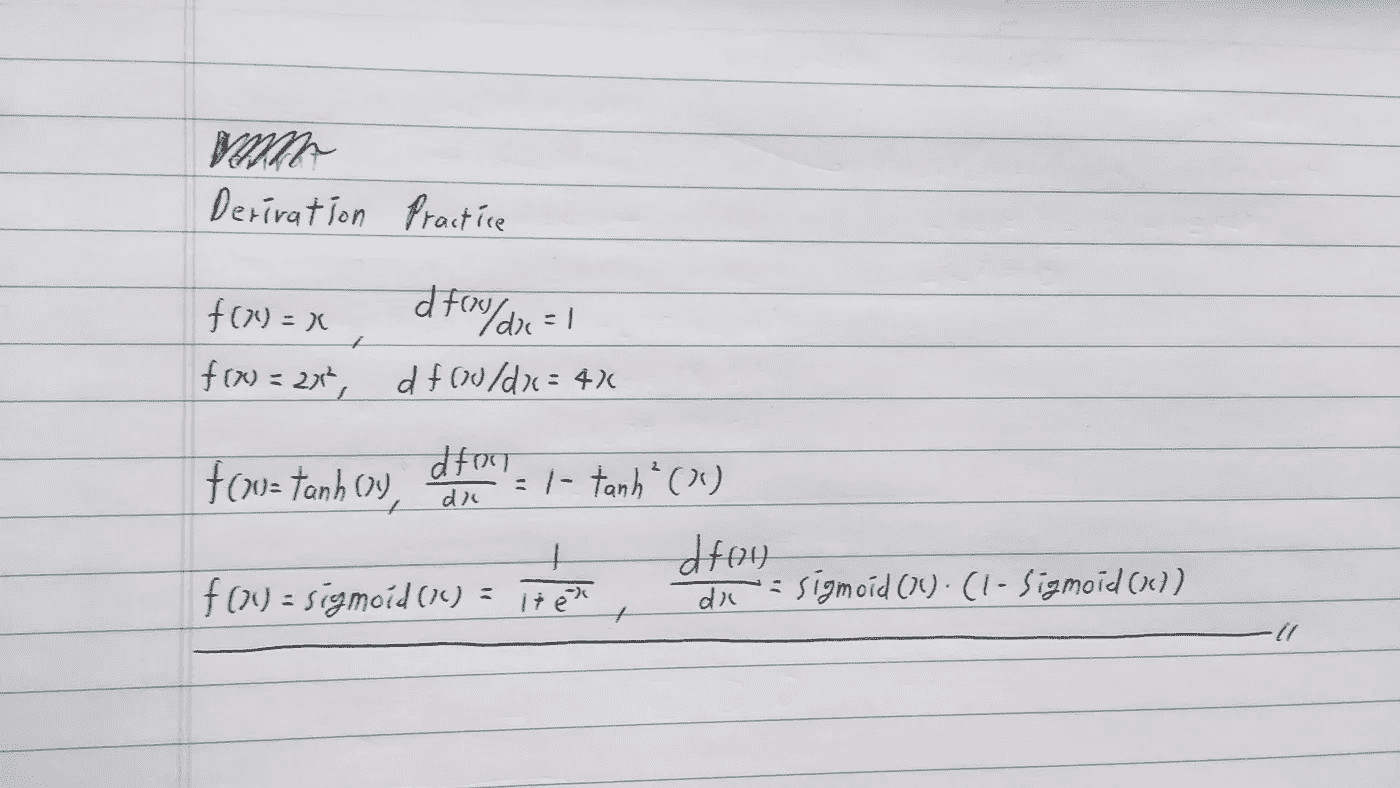 Derivation Practice
f(x) = x, df(x)/dx = 1
f(x) = 2x², df(x)/dx = 4x
f(x) = tanh(x), df(x)/dx = 1 - tanh²(x)
f(x) = sigmoid(x) = 1/(1+e^-x), df(x)/dx = sigmoid(x)·(1 - sigmoid(x))